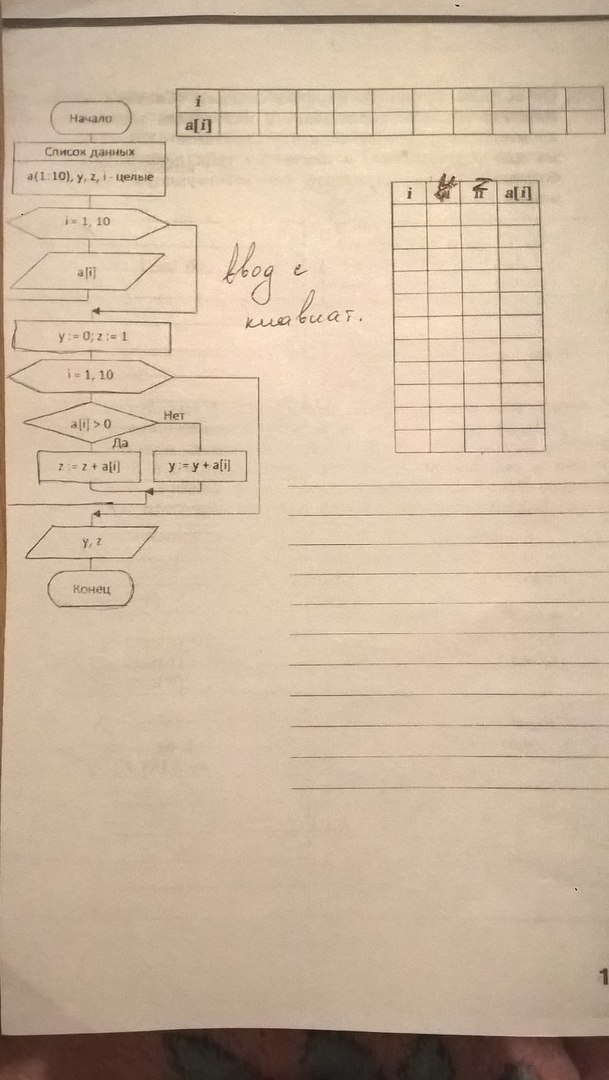 Начало
Список данных
a(1:10), y, z, i - целые
i = 1, 10
a[i]
y := 0; z := 1
i = 1, 10
a[i] > 0
Нет
Да
z := z + a[i]
y := y + a[i]
y, z
Конец
i
a[i]
Ввод с
клавиат.
i y z a[i]
1